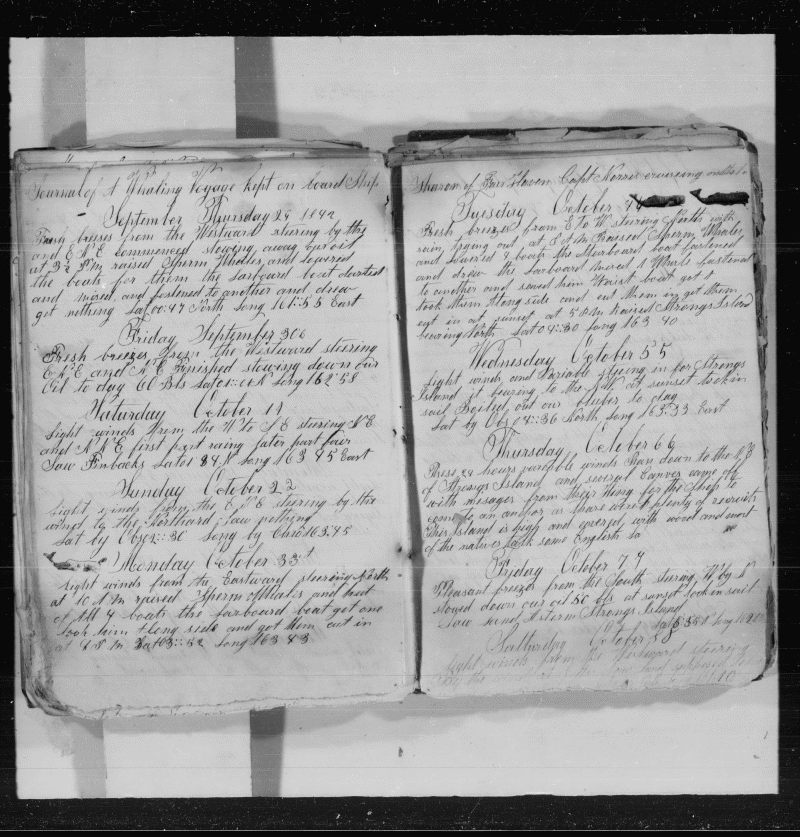 Journal of A Whaling Voyage Kept on board Ship
September Thursday 29 1842
Fresh breezes from the Westward steering by the
and E N E commenced stowing away our oil
at 3½ P M raised Sperm Whales and lowered
the boats for them the Larboard boat darted
and missed and fastened to another and drew
got nothing Lat 00::47 North Long 161::55 East
Friday September 30
Fresh breezes from the Westward steering
E N E and N E Finished stowing down our
Oil to day 60 Bls Lat 01:: Long 162 58
Saturday October 1
Light winds from the W to S E steering N E
and N N E first part rainy later part fair
Saw Finbacks Lat 01 34 N Long 163 45 East
Sunday October 2 2
Light winds from the E S E steering by the
wind to the Northard saw nothing
Lat by Obs 2::30 Long by Chro 163 45
Monday October 3 3
Light winds from the Eastward steering North
at 10 A M raised Sperm Whales and
of All 4 boats the Larboard boat got one
took him along side and got them cut in
at 8 P M Lat 03::52 Long 163 43
Sharon of Fair Haven Capt Norris cruising on the
Tuesday October 4
Fresh breezes from E to W steering North with
rain trying out at A M Raised Sperm Whales
and lowered 4 boats the Starboard boat fastened
and drew the Larboard missed A Whale fastened
to another and saved him Waist boat got 1
took them Along side and cut them in got them
cut in at sunset at 5 P M Raised Strongs Island
bearing North Lat 04::30 Long 163 40
Wednesday October 5 5
Light winds and Variable steering in for Strongs
Island it bearing to the N W at sunset took in
sail Boiled out our bluber to day
Lat by Obs 04::36 North Long 163::33 East
Thursday October 6 6
These 24 hours variable winds Ran down to the
of Strongs Island and several Canoes came off
with mesages from their King for the ship to
come to an anchor as thare were plenty of recruits
This Island is high and covered with wood and most
of the natives talk some English
Friday October 7 7
Pleasant breezes from the South steering W by N
stowed down our oil 50 bls at sunset took in sail
Saw land Astern Strongs Island
Lat 5 35 N Long 162
Saturday October 8
Light winds from the Eastward steering